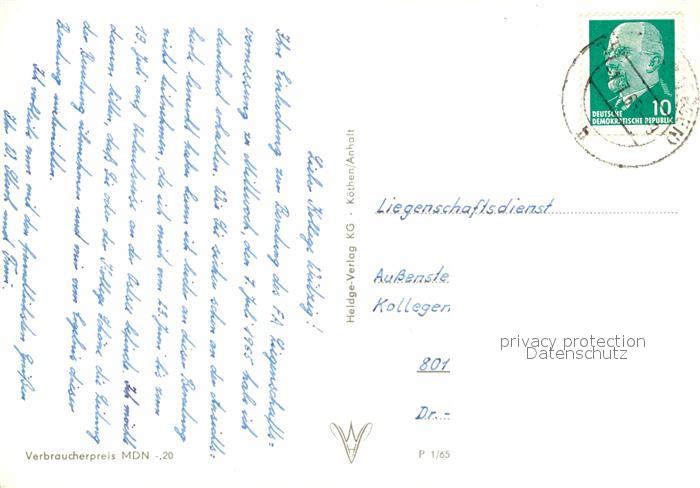 Lieber Kollege Witzig!
Ihre Einladung zur Beratung des FA Liegenschafts-
vermessung zu Mittwoch, den 7. Juli 1965 habe ich
dankend erhalten. Wie Sie sicher schon an der Ansichts-
karte bemerkt habe kann ich leider an dieser Beratung
nicht teilnehmen, da ich mich vom 25. Juni bis zum
19. Juli auf Urlaubsreise an der Ostsee befinde. Ich möchte
darum bitten, daß Sie oder der Kollege die Leitung
der Beratung übernehmen und mir vom Ergebnis dieser
Beratung unterrichten.
Ich verbleibe nun mit den freundlichsten Grüßen
Ihr W. und Frau.
Verbraucherpreis MDN -,20
Heldge-Verlag KG · Köthen/Anhalt
DEUTSCHE
DEMOKRATISCHE REPUBLIK
10
Liegenschaftsdienst
Außenste
Kollegen
privacy protection
Datenschutz
801
Dr.-
P 1/65